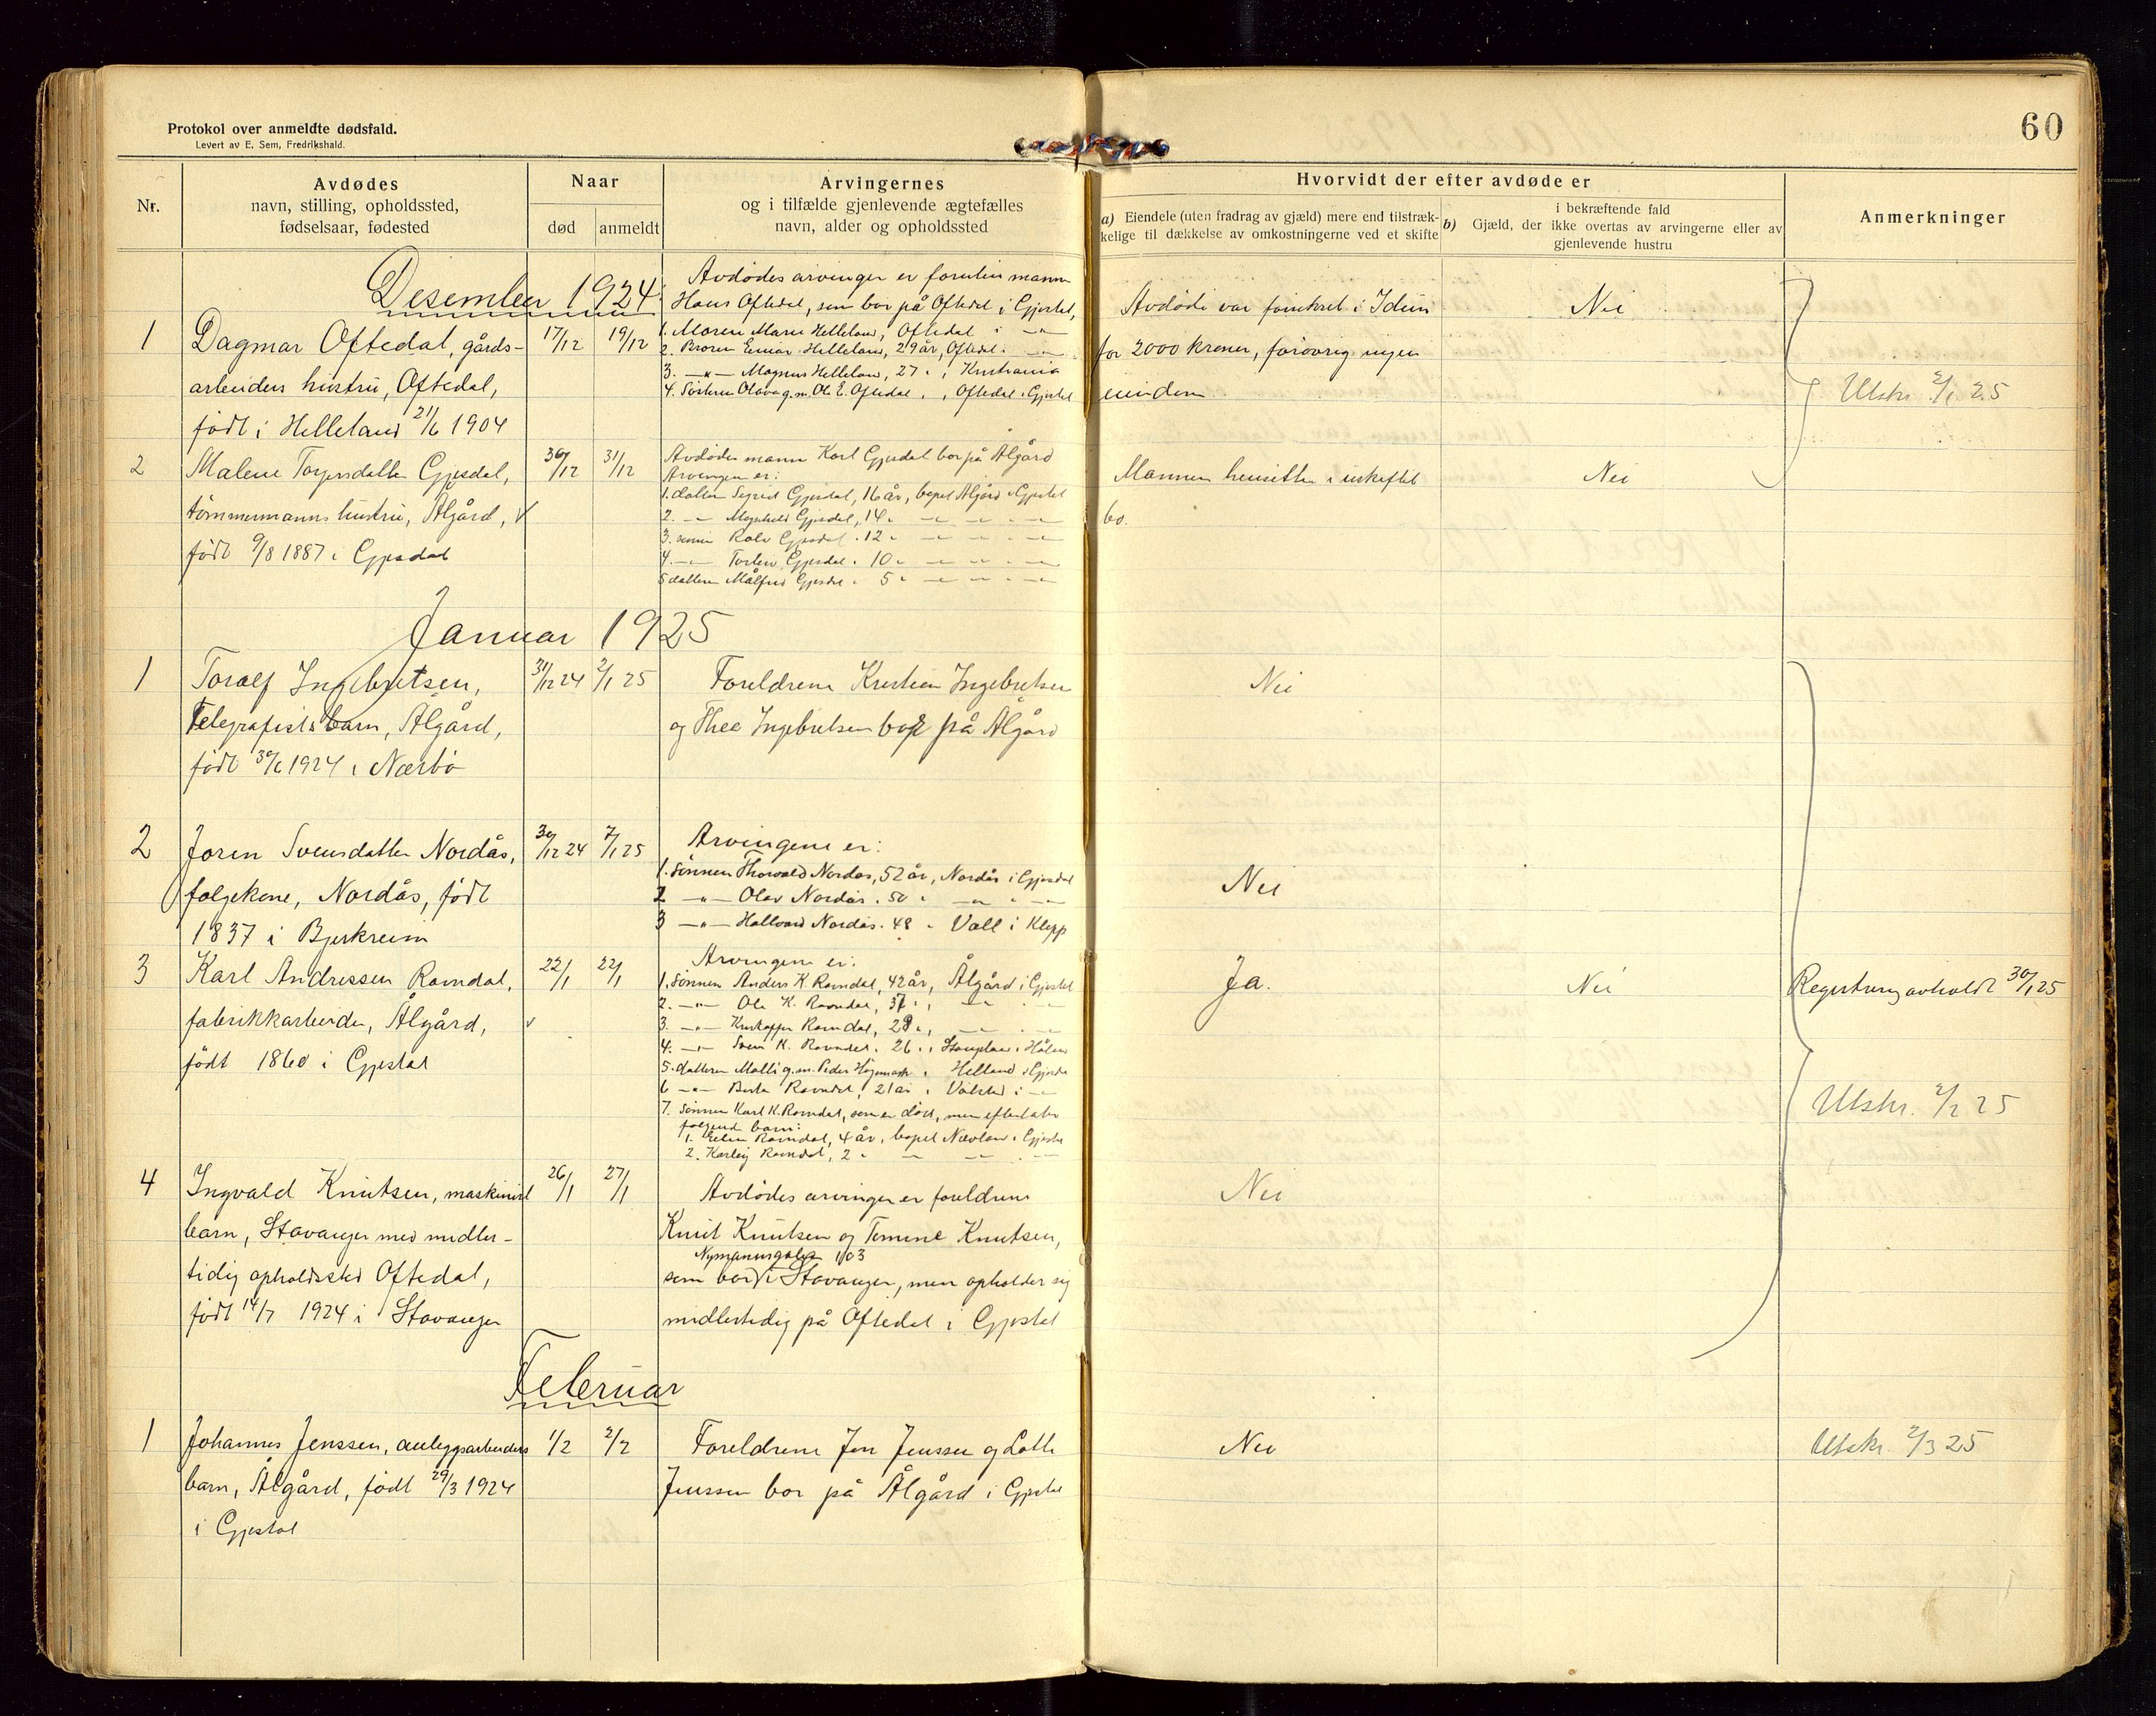 Protokol over anmeldte dødsfald.
Levert av E. Sem, Fredrikshald.
60
Nr.
Avdødes
navn, stilling, opholdssted,
fødselsaar, fødested
Naar
død
anmeldt
Arvingernes
og i tilfælde gjenlevende ægtefælles
navn, alder og opholdssted
Hvorvidt der efter avdøde er
a) Eiendele (uten fradrag av gjæld) mere end tilstræk-
kelige til dækkelse av omkostningerne ved et skifte
i bekræftende fald
b) Gjæld, der ikke overtas av arvingerne eller av
gjenlevende hustru
Anmerkninger
Desember 1924
1
Dagmar Oftedal, gårds-
arbeiders hustru, Oftedal,
født i Helleland 21/6 1904
17/12
19/12
Avdødes arvinger er foruten mann
Hans Oftedal, som bor på Oftedal i Gjestal,
1. Moren Marie Helleland, Oftedal i -"-
2. Broren Einar Helleland, 29 år, Oftedal i -"-
3. -"- Magnus Helleland, 27 " , Kristiania
4. Søsteren Olava g.m. Ole E. Oftedal, " , Oftedal i Gjestal
Avdøde var forsikret i Idun
for 2000 kroner, forøvrig ingen
eiendom
Nei
Utskr. 2/1 25
2
Malene Torgersdatter Gjesdal,
tømmermanns hustru, Ålgård, v
født 9/8 1887 i Gjesdal
30/12
31/12
Avdødes mann Karl Gjesdal bor på Ålgård
Arvingen er:
1. datter Sigrid Gjesdal, 16 år, bopel Ålgård i Gjestal
2. -"- Magnhild Gjesdal, 14 " -"- -"- " -"-
3. sønn Rolv Gjesdal " 12 " -"- -"- " -"-
4. -"- Torleiv Gjesdal " 10 " -"- -"- " -"-
5 datteren Målfrid Gjesdal " 5 " -"- -"- " -"-
Mannen hensitter i uskiftet
bo.
Nei
Januar 1925
1
Toralf Ingebretsen,
Telegrafists barn, Ålgård,
født 30/6 1924 i Nærbø
31/12 24
2/1 25
Foreldrene Kristian Ingebretsen
og Thea Ingebretsen bor på Ålgård
Nei
2
Joren Svensdatter Nordås,
følgekone, Nordås, født
1837 i Bjerkreim
30/12 24
7/1 25
Arvingene er:
1. Sønnen Thorvald Nordås, 52 år, Nordås i Gjesdal
2 -"- Olav Nordås " 50 " -"- " -"-
3 -"- Hallvard Nordås " 48 " Voll i Klepp
Nei
3
Karl Andressen Ramdal,
fabrikkarbeider, Ålgård, v
født 1860 i Gjestal
22/1
22/1
Arvingene er:
1. Sønnen Anders K. Ramdal, 42 år, Ålgård i Gjestal
2. -"- Ole K. Ramdal, 37 " , -"- " -"-
3. -"- Kristoffer Ramdal, 28 " , -"- " -"-
4. -"- Sven K. Ramdal, 26 " ,
5. datteren Malli g.m. Peder " Helland i Gjesdal
6 -"- Berta Ramdal, 21 år " i -"-
7. Sønnen Karl K. Ramdal, som er død, men efterlater
følgende barn:
1. Ramdal, 4 år, bopel i Gjesdal
2. Ramdal, 2 " -"- -"- " -"-
Ja.
Nei
Registrering avholdt 30/1 25
Utskr. 2/2 25
4
Ingvald Knutsen, maskinist
barn, Stavanger med midler-
tidig opholdssted Oftedal,
født 14/7 1924 i Stavanger
26/1
27/1
Avdødes arvinger er foreldrene
Knut Knutsen og Tomine Knutsen,
Nymannsgaten 103
som bor i Stavanger, men opholder sig
midlertidig på Oftedal i Gjestal
Nei
Februar
1
Johannes Jenssen, anleggsarbeiders
barn, Ålgård, født 29/3 1924
i Gjestal
1/2
2/2
Foreldrene Jon Jenssen og Lotte
Jenssen bor på Ålgård i Gjestal
Nei
Utskr. 2/3 25